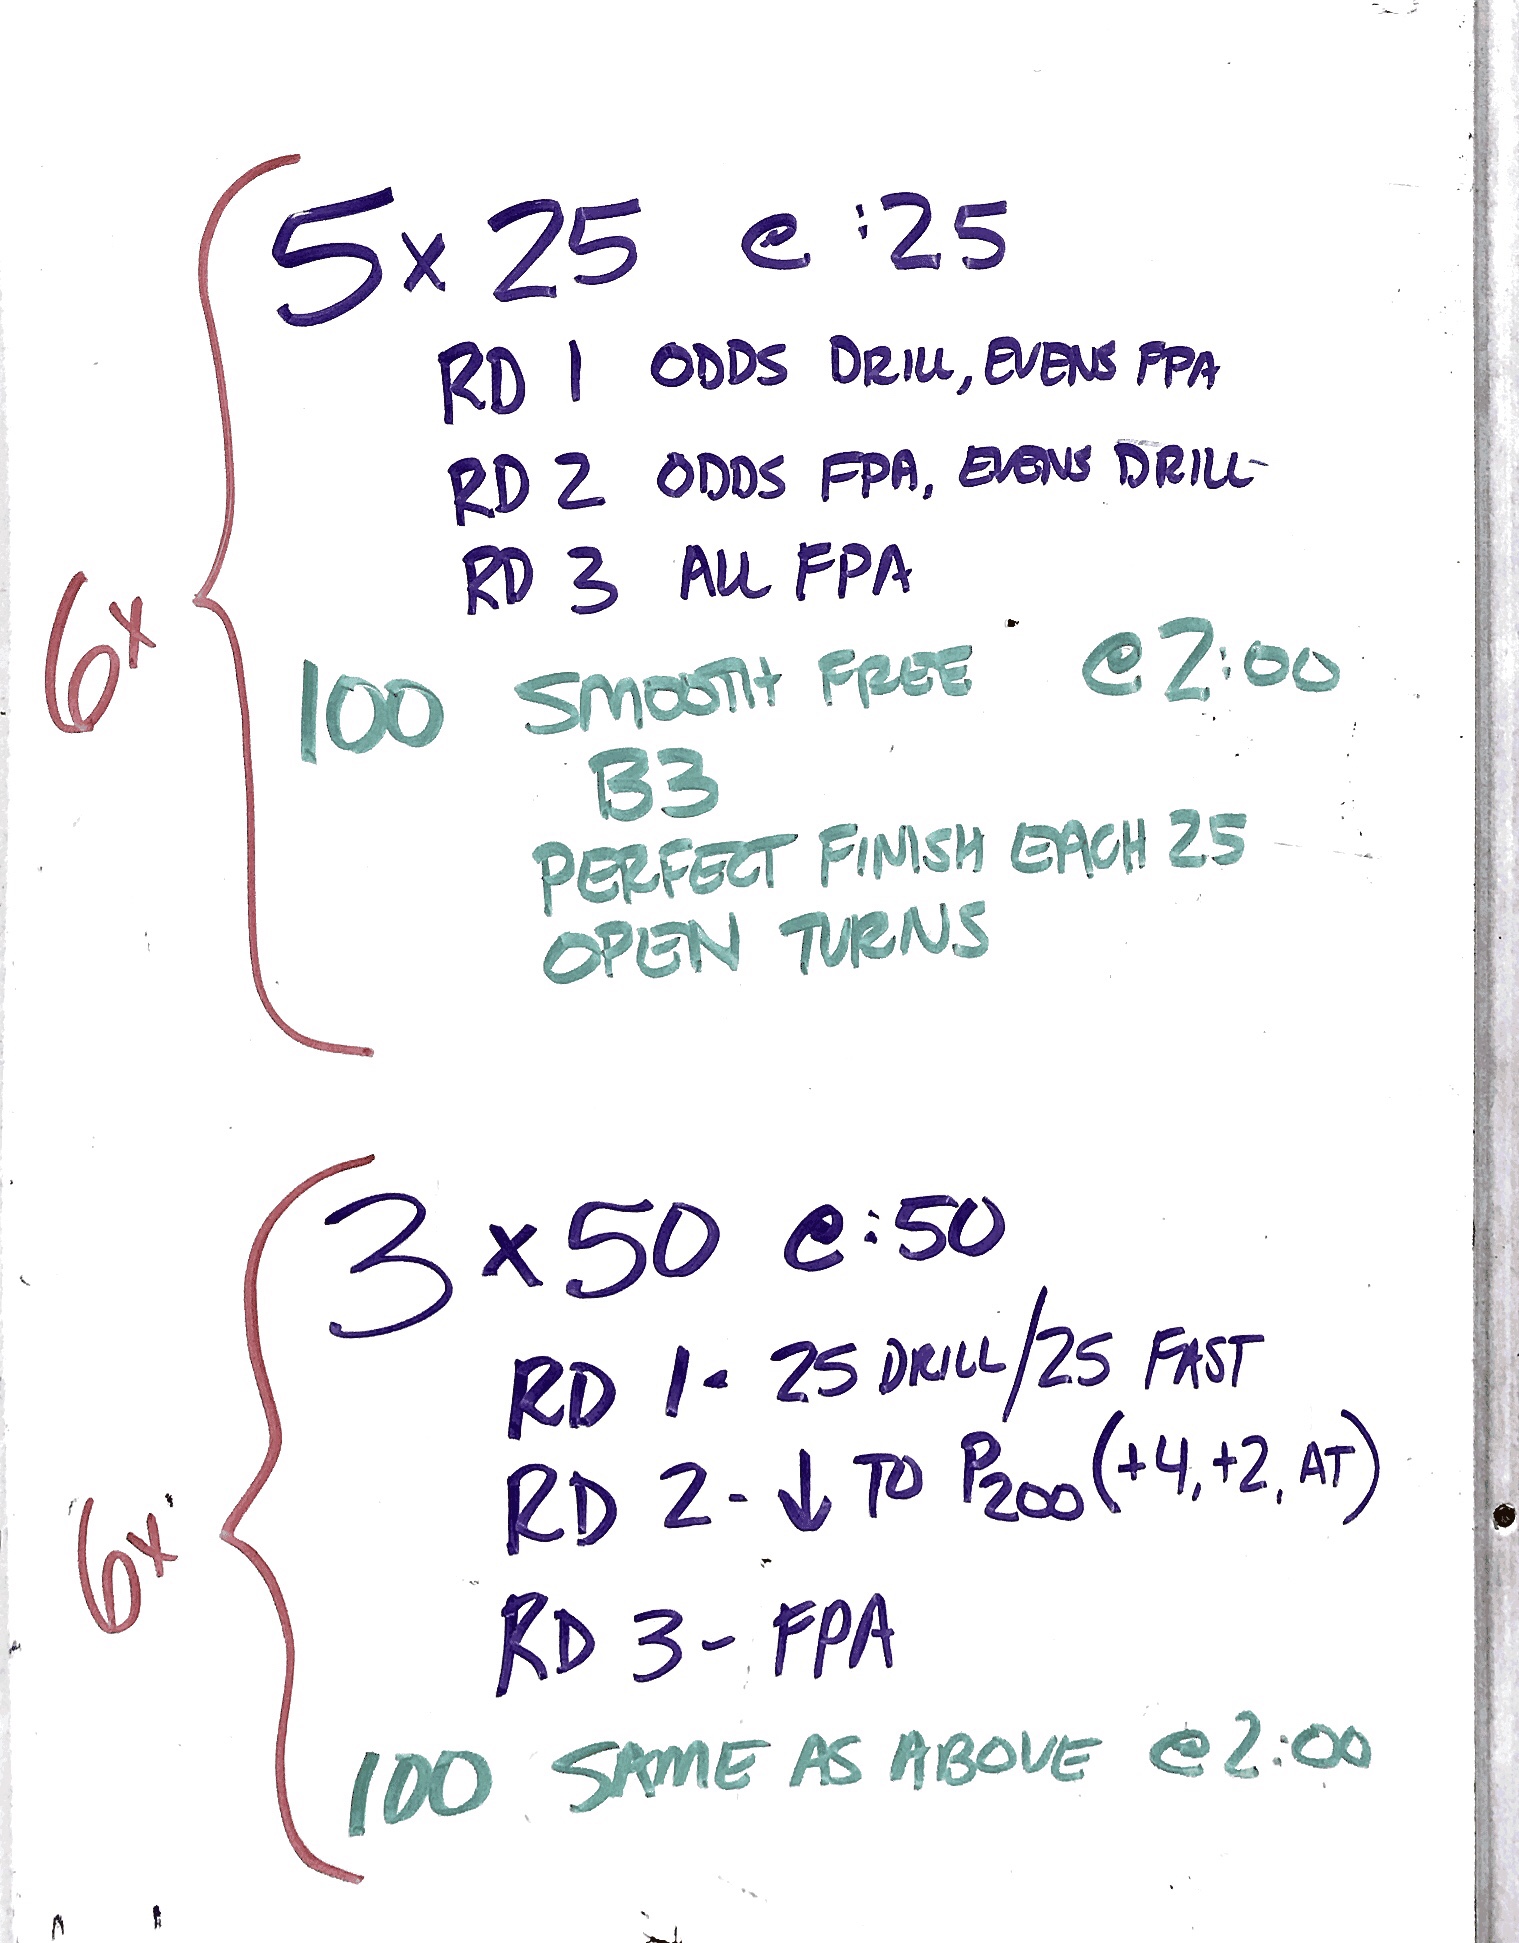 6x
5 x 25 @ :25
RD 1 ODDS DRILL, EVENS FPA
RD 2 ODDS FPA, EVENS DRILL
RD 3 ALL FPA
100 SMOOTH FREE @ 2:00
B3
PERFECT FINISH EACH 25
OPEN TURNS
6x
3 x 50 @ :50
RD 1- 25 DRILL/25 FAST
RD 2- ↓ TO P200 (+4, +2, AT)
RD 3- FPA
100 SAME AS ABOVE @ 2:00